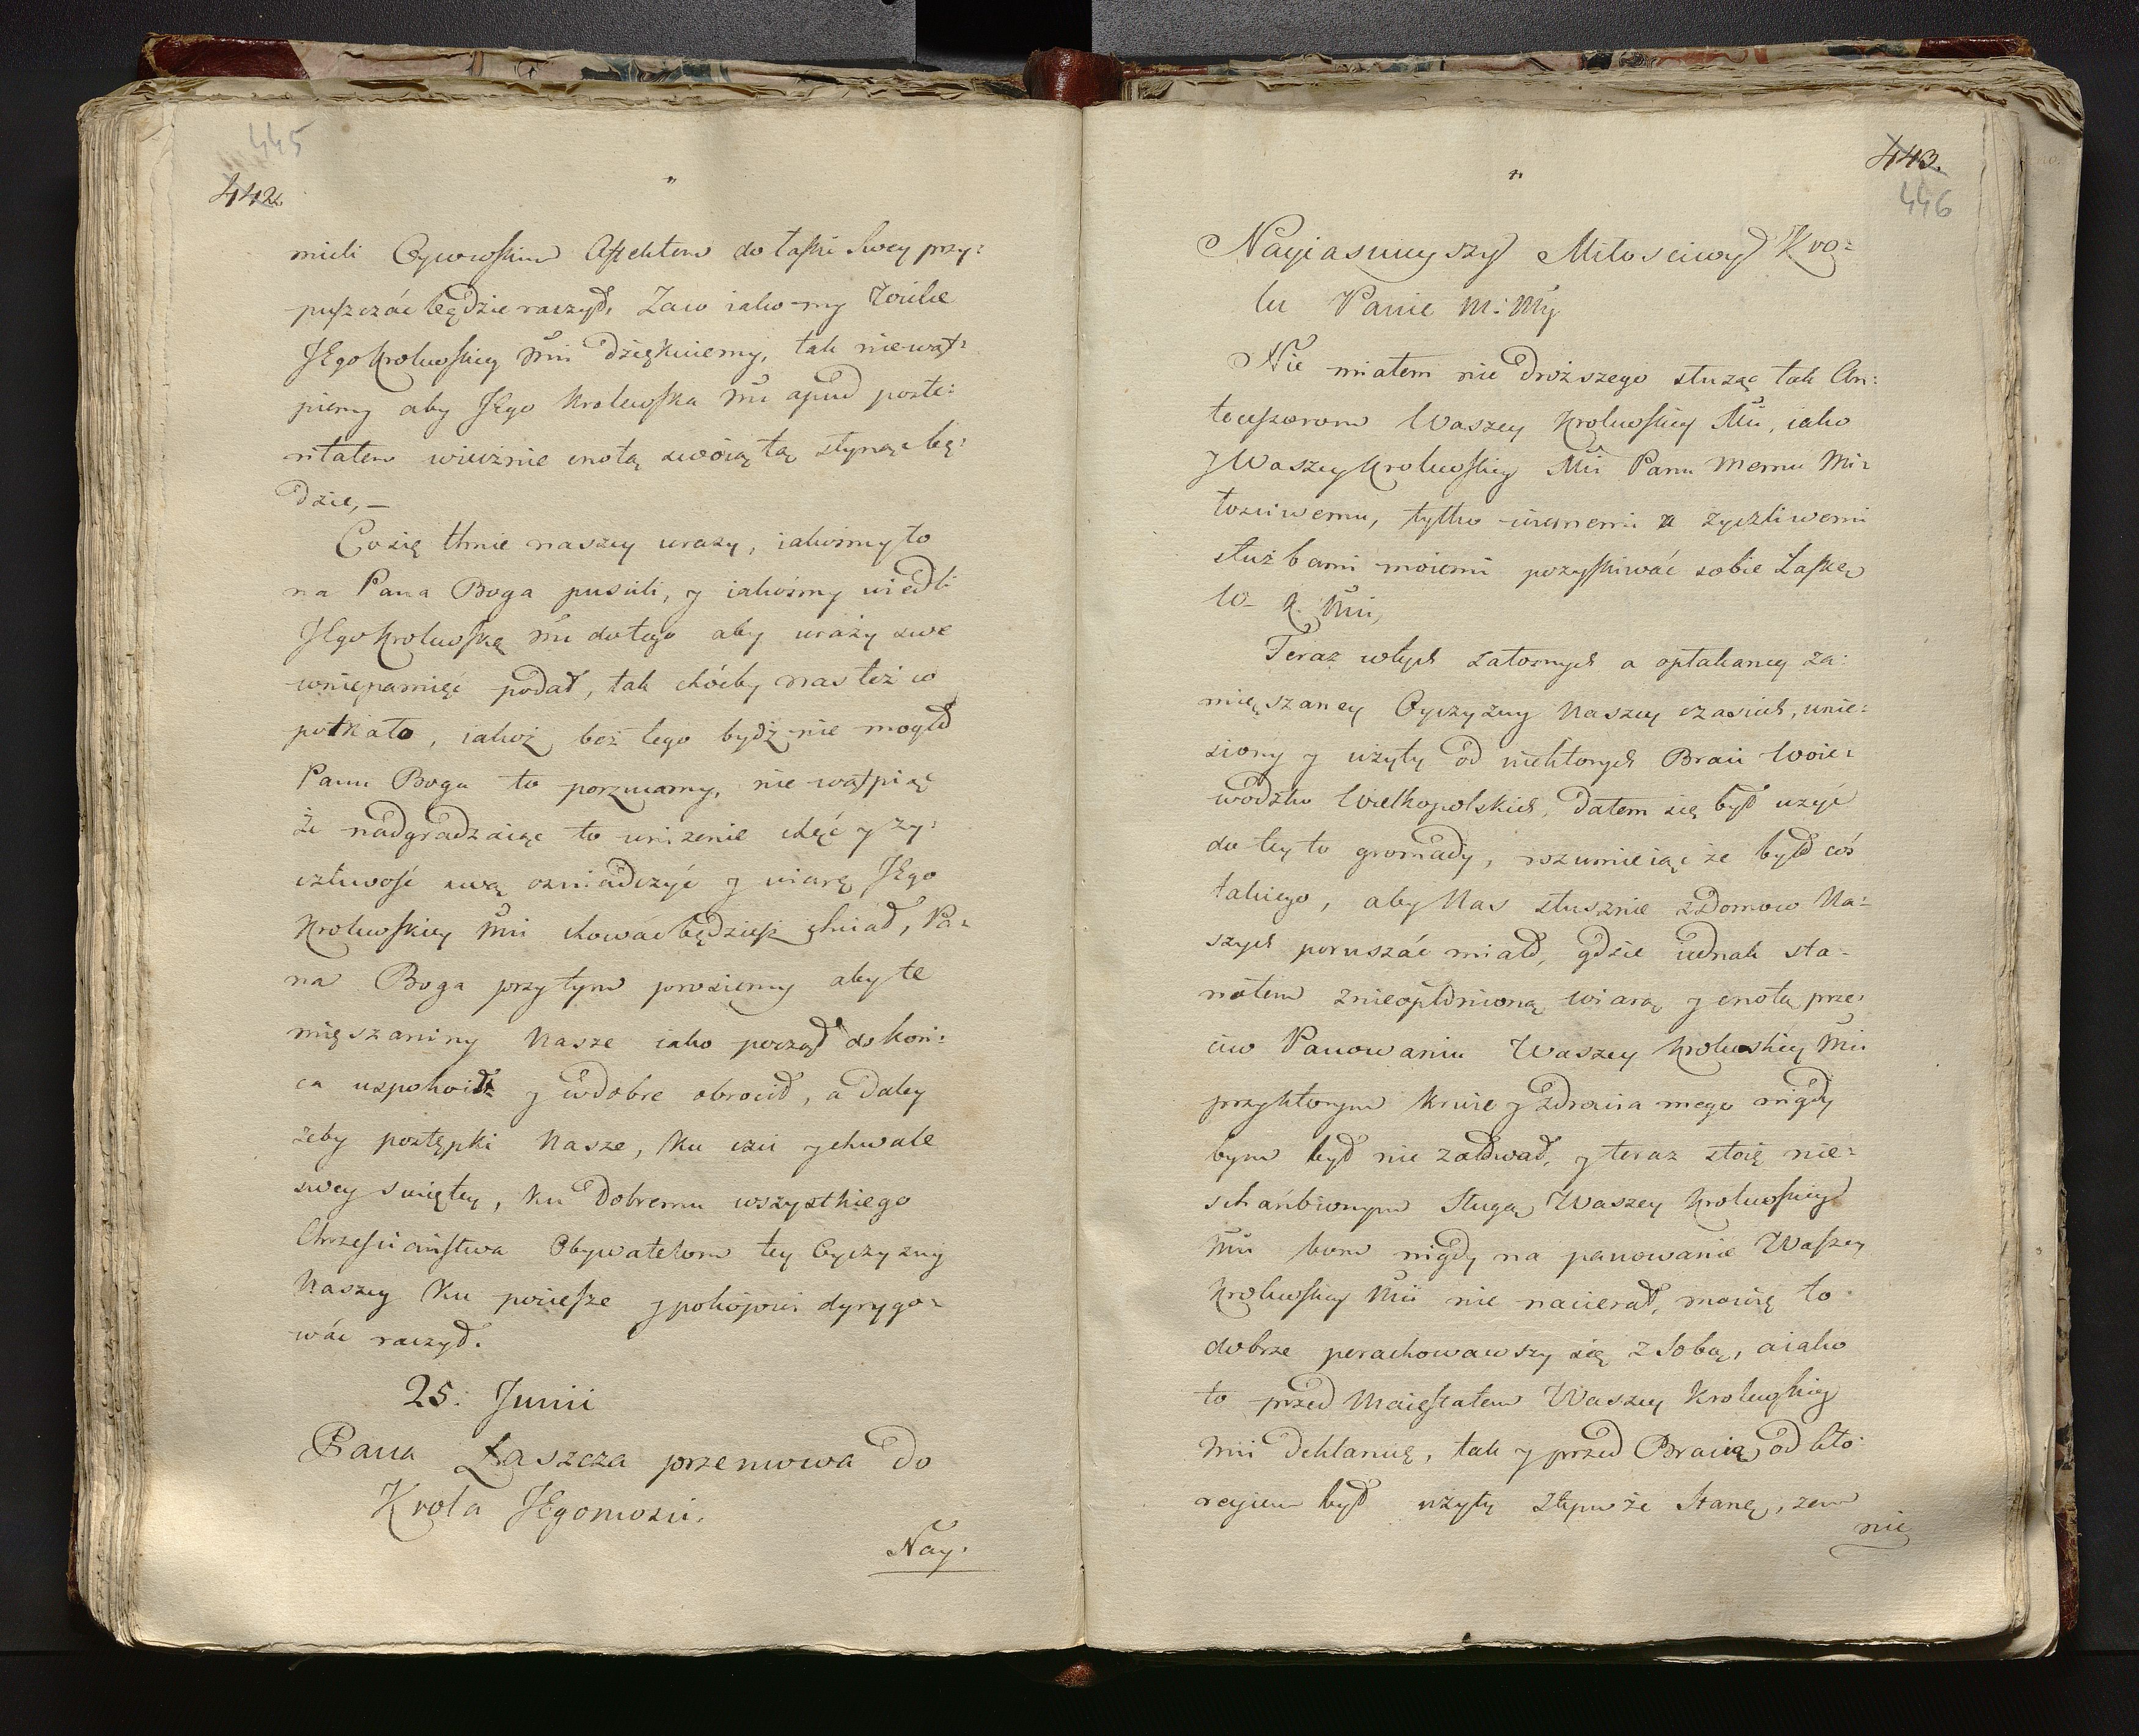 445
442.
mieli Oycowskim Affektem do łaski Swey przy:
puszczać będzie raczył, Zaco iako my Wielce
JEgo Krolewskiey Mći dziękuiemy, tak niewąt:
piemy aby JEgo Krolewska Mć apud poste:
ritatem wiecznie cnotą swoią tą słynąć bę:
dzie,—
Co się tknie naszey urazy, iakosmy to
na Pana Boga puscili, y iakośmy wiedli
JEgo Krolewską Mć do tego aby urazy swe
wniepamięć podał, tak choćby nas też co
potkało, iakoż bez tego bydź nie mogło
Panu Bogu to porzucamy, nie wątpiąc
że nadgradzaiąc to unizenie chęć y zy:
czliwość swą oswiadczyć y wiarę JEgo
Krolewskiey Mći chować będziesz chciał, Pa:
na Boga przytym prosiemy aby te
mięszaniny Nasze iako począł do koń:
ca uspokoił y wdobre obrocił, a daley
żeby postępki Nasze, Ku czci y chwale
swey swiętey, Ku Dobremu wszystkiego
Chrześciaństwa Obywatelom tey Oyczyzny
Naszey Ku pociesze y pokojowi dyrygo:
wać raczył.
25. Junii
Pana Łaszcza przemowa Do
Krola JEgomosci.
Nay:
443.
446
Nayiasnieyszy Miłosciwy Kro:
lu Panie M: MY
Nie miałem nic droższego służąc tak An:
tecessorom Waszey Krolewskiey Mći, iako
y Waszey Krolewskiey Mći Panu Memu Mi:
łosciwemu, tylko wiernemi a zyczliwemi
służbami moiemi pozyskiwać sobie Łaskę
W. K. Mći,
Teraz wtych załosnych a opłakaney za:
mięszaney Oyczyzny Naszey czasiech, unie:
siony y użyty od niektorych Braci Woie:
wodztw Wielkopolskich, dałem się był uzyć
do tey to gromady, rozumieiąc że było coś
takiego, aby Nas słusznie z Domow Na:
szych poruszać miało, gdzie iednak sta:
nołem z wiarą y cnotą prze:
ciw Panowaniu Waszey Krolewskiey Mći
przyktorym Krwie y zdrowia mego nigdy
bym był nie załował, y teraz stoię nie:
schańbionym Sługą Waszey Krolewskiey
Mći bom nigdy na panowanie Waszey
Krolewskiey Mći nie nacierał, mowię to
dobrze porachowawszy się z Sobą, a iako
to przed Maiestatem Waszey Krolewskiey
Mći deklaruię, tak y przed Bracią od kto:
reyiem był uzyty ztym że Stanę, zem
nie